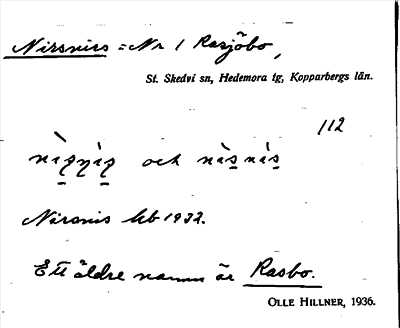 Nirsnirs = Nr 1 Rasjöbo,
St. Skedvi sn, Hedemora tg, Kopparbergs län.
112
och
Nirsnis hb 1932.
Ett äldre namn är Rasbo.
OLLE HILLNER, 1936.